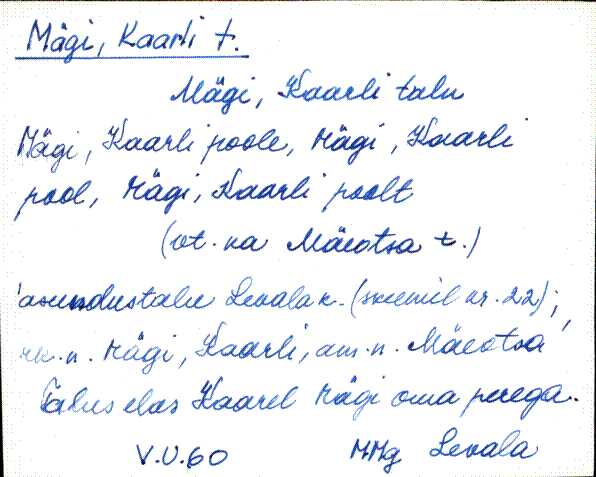 Mägi, Kaarli t.
Mägi, Kaarli talu
Mägi, Kaarli poole, Mägi, Kaarli
pool, Mägi, Kaarli poolt
(vt. ka Mäeotsa t.)
asundustalu Levala k. (skeemil nr. 22);
rk. n. Mägi, Kaarli, am. n. Mäeotsa
Talus elas Kaarel Mägi oma perega.
V.U.60 MMg Levala